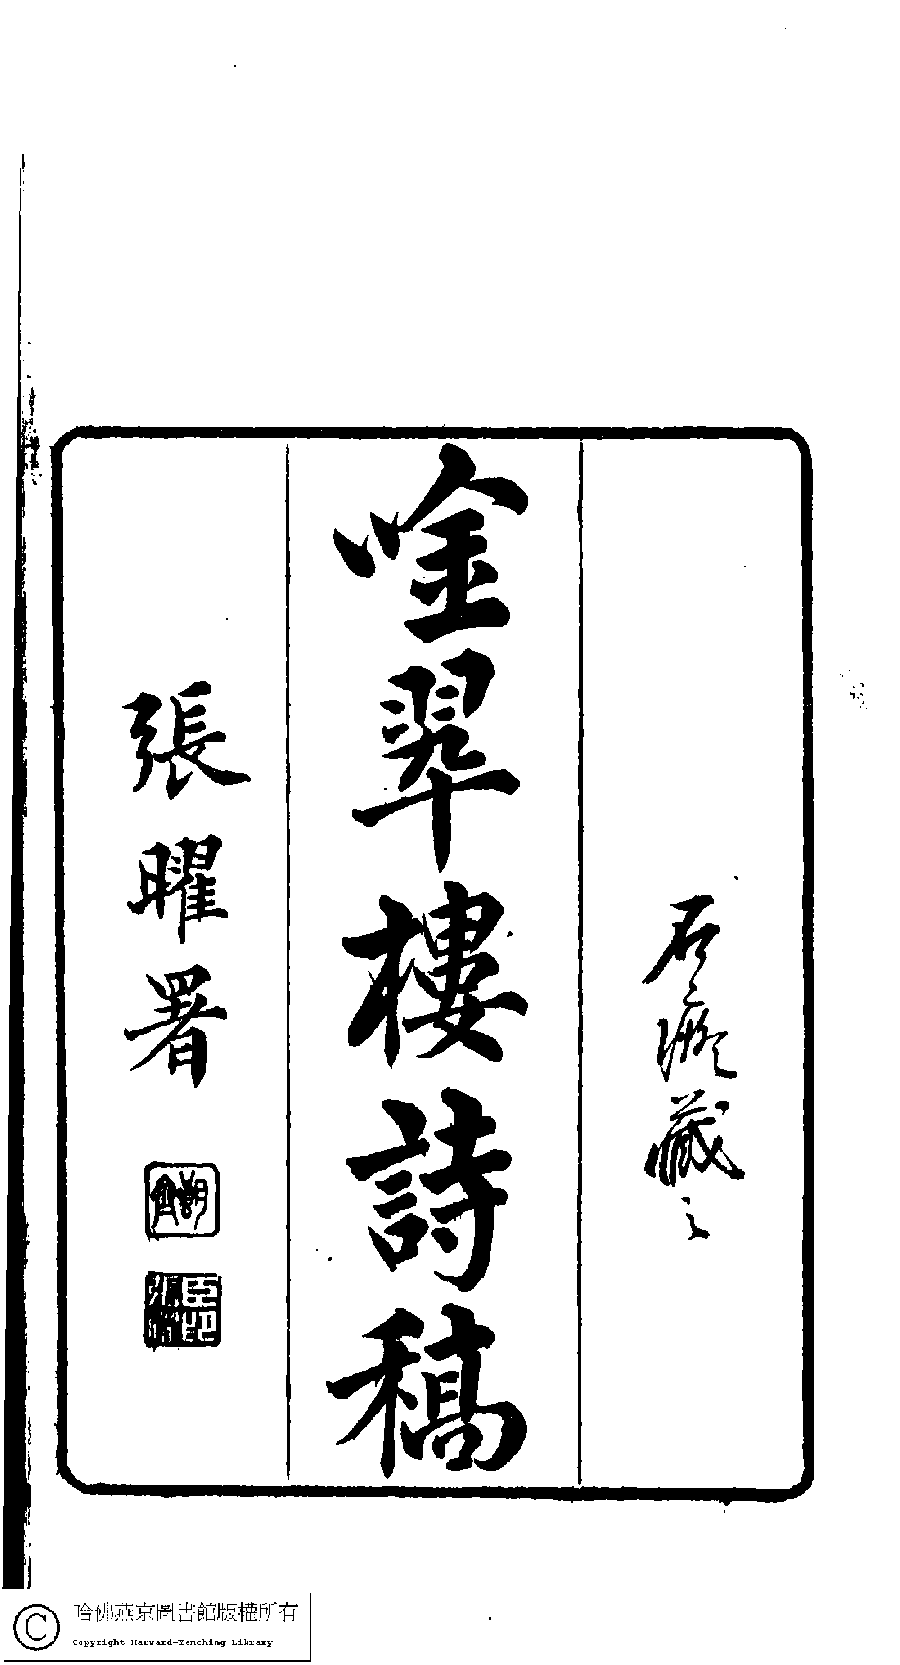 石藏之
唫翠樓詩稿
張曜署
朗齋
臣張曜印
哈佛燕京圖書館版權所有
Copyright Harvard-Yenching Library